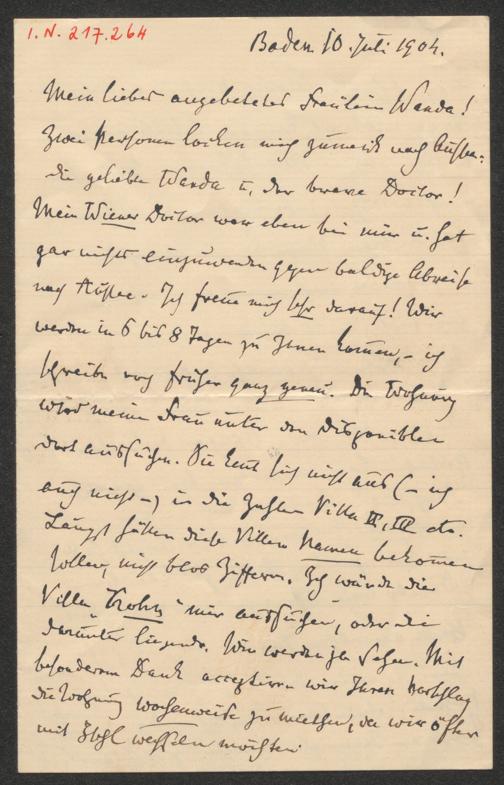 I.N. 217.264
Baden 10. Juli 1904.
Mein liebes angebetetes Fräulein Wanda!
Zwei Personen locken mich zumeist nach Aussee:
die geliebte Wanda u. der brave Doctor!
Mein Wiener Doctor war eben bei mir u. hat
gar nichts einzuwenden gegen baldige Abreise
nach Aussee. Ich freue mich sehr darauf! Wir
werden in 6 bis 8 Tagen zu Ihnen kommen, – ich
schreibe noch früher ganz genau. Die Wohnung
wird meine Frau unter den disponiblen
dort aussuchen. Sie kennt sich nicht aus (– ich
auch nicht –) in die Zahlen Villa II, III etc.
Längst hätten diese Villen Namen bekommen
sollen, nicht blos Ziffern. Ich würde die
Villa "Krohn" mir aussuchen, oder die
darunter liegende. Wir werden ja sehen. Mit
besonderem Dank acceptiren wir Ihren Vorschlag
die Wohnung wochenweise zu miethen, da wir öfter
mit wechseln möchten